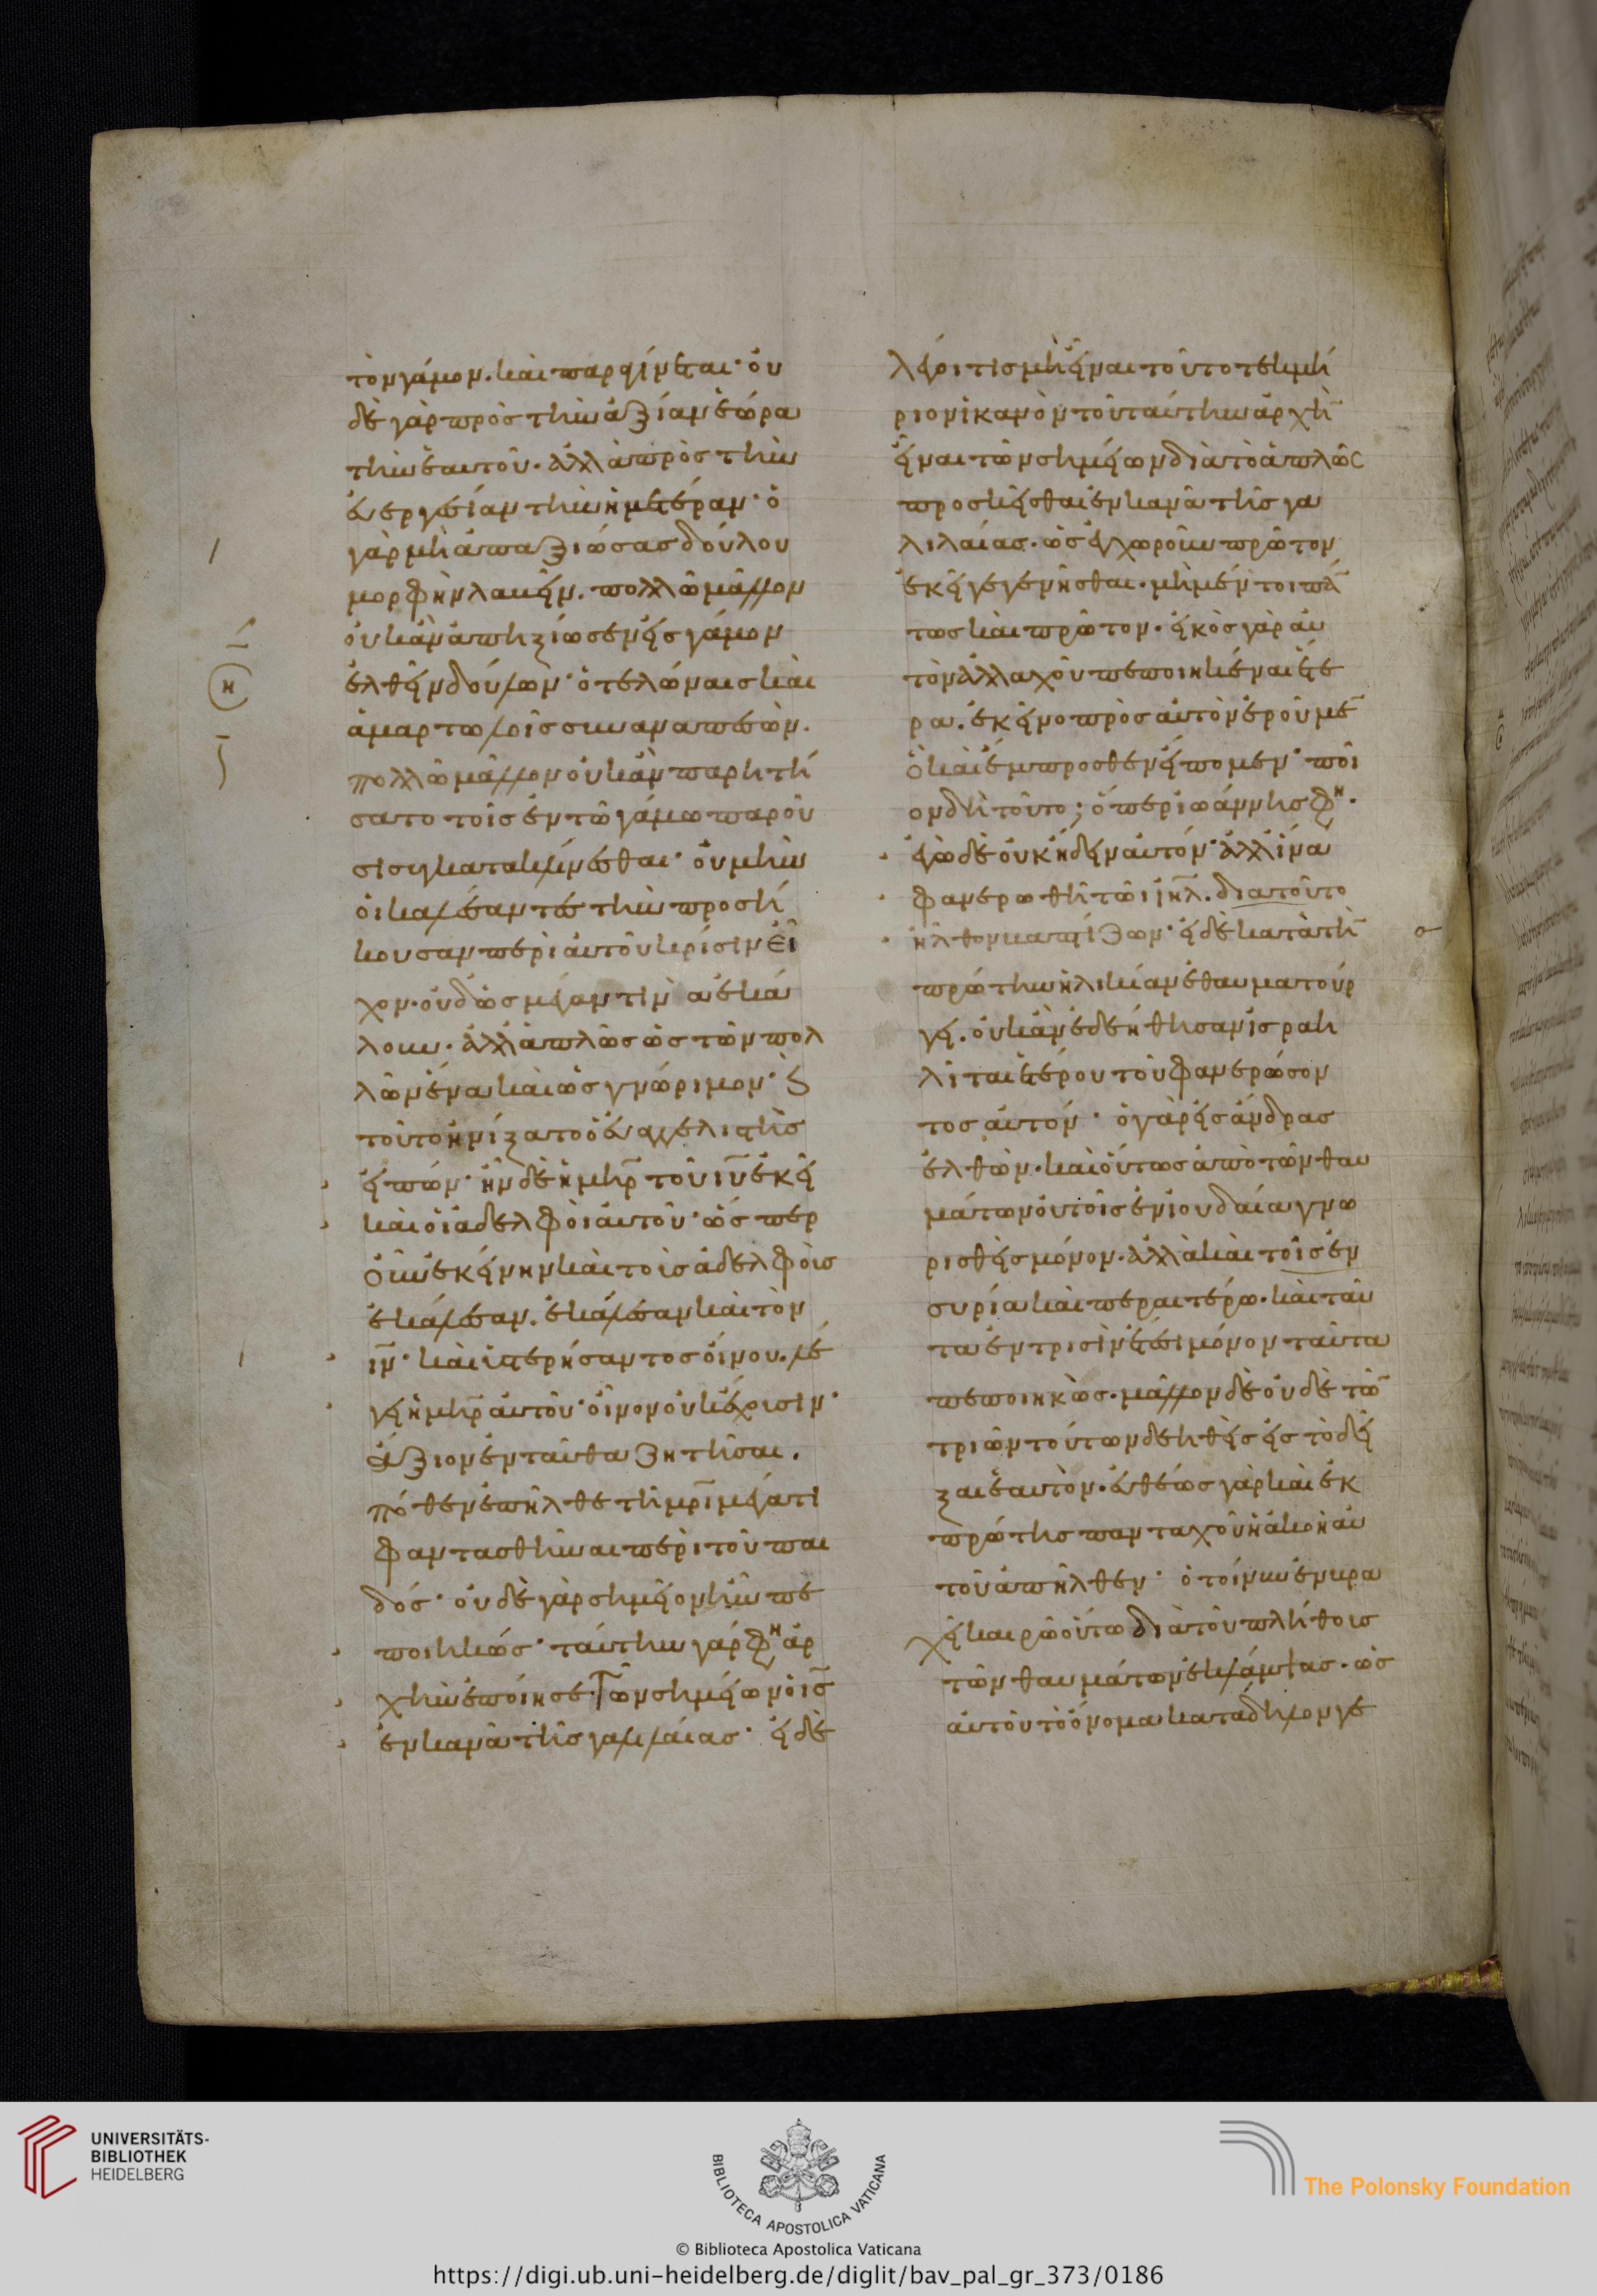 τὸν γάμον. καὶ παραγίνεται· οὐ
δὲ γὰρ πρὸς τὴν ἀξίαν ἑώρα
τὴν ἑαυτοῦ. ἀλλὰ πρὸς τὴν
εὐεργεσίαν τὴν ἡμετέραν· ὁ
γὰρ μὴ ἀπαξιώσας δούλου
μορφὴν λαβεῖν. πολλῶ μᾶλλον
οὐκ ἂν ἀπηξίωσεν εἰς γάμον
ἐλθεῖν δούλων· ὁ τελώναις καὶ
ἁμαρτωλοῖς συναναπεσὼν.
πολλῶ μᾶλλον οὐκ ἂν παρητή
σατο τοῖς ἐν τῶ γάμω παροῦ
σι συγκατακλίνεσθαι· οὐ μὴν
οἱ καλέσαντες τὴν προσή
κουσαν περὶ αὐτοῦ κρίσιν εἶ
χον. οὐδ ὡς μέγαν τινὰ ἐκά
λουν. ἀλλ ἁπλῶς ὡς τῶν πολ
λῶν ἕνα καὶ ὡς γνώριμον· καὶ
τοῦτο ἠνίξατο ὁ εὐαγγελιστὴς
εἰπών· ἦν δὲ ἡ μηρ τοῦ ιυ ἐκεῖ
καὶ οἱ ἀδελφοὶ αὐτοῦ· ὥσπερ
οὖν ἐκείνην καὶ τοὺς ἀδελφοὺς
ἐκάλεσαν. ἐκάλεσαν καὶ τὸν
ιν· καὶ ὑστερήσαντος οἴνου. λέ
γει ἡ μηρ αὐτοῦ· οἶνον οὐκ ἔχουσιν·
ἄξιον ἐνταῦθα ζητῆσαι.
πόθεν ἐπῆλθε τῆ μρι μέγα τι
φαντασθῆναι περὶ τοῦ παι
δός· οὐδὲ γὰρ σημεῖον ἦν πε
ποιηκώς· ταύτην γάρ φη ἀρ
χὴν ἐποίησε τῶν σημείων ὁ ις
ἐν κανᾶ τῆς γαλιλαίας· εἰ δὲ
λέγοι τις μὴ εἶναι τοῦτο τεκμή
ριον ἱκανὸν τοῦ ταύτην ἀρχὴν
εἶναι τῶν σημείων διὰ τὸ ἁπλῶς
προσκεῖσθαι ἐν κανᾶ τῆς γα
λιλαίας. ὡς ἐγχωροῦν πρῶτον
ἐκεῖ γεγενῆσθαι. μὴ μέντοι πάν
τως καὶ πρῶτον. εἰκὸς γὰρ αὐ
τὸν ἀλλαχοῦ πεποιηκέναι ἕτε
ρα. ἐκεῖνο πρὸς αὐτὸν ἐροῦμεν
ὃ καὶ ἔμπροσθεν εἴπομεν· ποῖ
ον δὴ τοῦτο; ὅπερ ἰωάννης φη.
ἐγὼ δὲ οὐκ ἤδειν αὐτόν· ἀλλ ἵνα
φανερωθῆ τῶ ιηλ. διατοῦτο
ἦλθον βαπτίζων· εἰ δὲ κατὰ τὴν
πρώτην ἡλικίαν ἐθαυματούρ
γει. οὐκ ἂν ἐδεήθησαν ἰσραη
λῖται ἑτέρου τοῦ φανερώσον
τος αὐτόν· ὁ γὰρ εἰς ἄνδρας
ἐλθὼν. καὶ οὕτως ἀπὸ τῶν θαυ
μάτων οὐ τοῖς ἐν ἰουδαία γνω
ρισθεὶς μόνον. ἀλλὰ καὶ τοῖς ἐν
συρία καὶ περαιτέρω. καὶ ταῦ
τα ἐν τρισὶν ἔτεσι μόνον ταῦτα
πεποιηκὼς. μᾶλλον δὲ οὐδὲ τῶν
τριῶν τούτων δεηθεὶς εἰς τὸ δεῖ
ξαι ἑαυτὸν. εὐθέως γὰρ καὶ ἐκ
πρώτης πανταχοῦ ἡ ἀκοὴ αὐ
τοῦ ἀπῆλθεν· ὁ τοίνυν ἐν βρα
χεῖ καιρῶ οὕτω διὰ τοῦ πλήθους
τῶν θαυμάτων ἐκλάμψας. ὡς
αὐτοῦ τὸ ὄνομα κατάδηλον γε
UNIVERSITÄTS-
BIBLIOTHEK
HEIDELBERG
BIBLIOTECA APOSTOLICA VATICANA
The Polonsky Foundation
© Biblioteca Apostolica Vaticana
https://digi.ub.uni-heidelberg.de/diglit/bav_pal_gr_373/0186